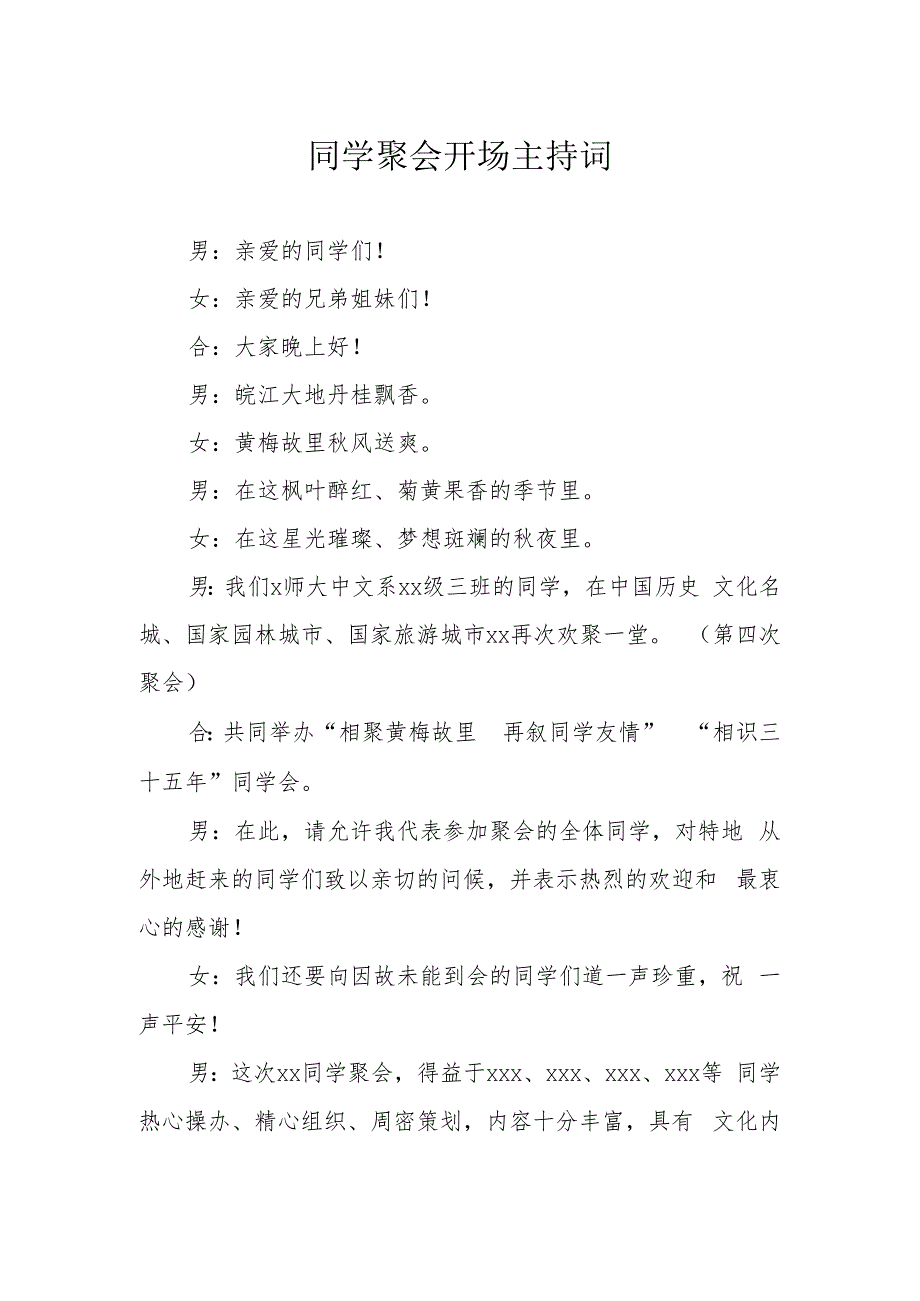 同学聚会开场主持词
男：亲爱的同学们！
女：亲爱的兄弟姐妹们！
合：大家晚上好！
男：皖江大地丹桂飘香。
女：黄梅故里秋风送爽。
男：在这枫叶醉红、菊黄果香的季节里。
女：在这星光璀璨、梦想斑斓的秋夜里。
男：我们x师大中文系xx级三班的同学，在中国历史 文化名
城、国家园林城市、国家旅游城市xx再次欢聚一堂。 （第四次
聚会）
合：共同举办“相聚黄梅故里 再叙同学友情” “相识三
十五年”同学会。
男：在此，请允许我代表参加聚会的全体同学，对特地 从
外地赶来的同学们致以亲切的问候，并表示热烈的欢迎和 最衷
心的感谢！
女：我们还要向因故未能到会的同学们道一声珍重，祝 一
声平安！
男：这次xx同学聚会，得益于xxx、xxx、xxx、xxx等 同学
热心操办、精心组织、周密策划，内容十分丰富，具有 文化内